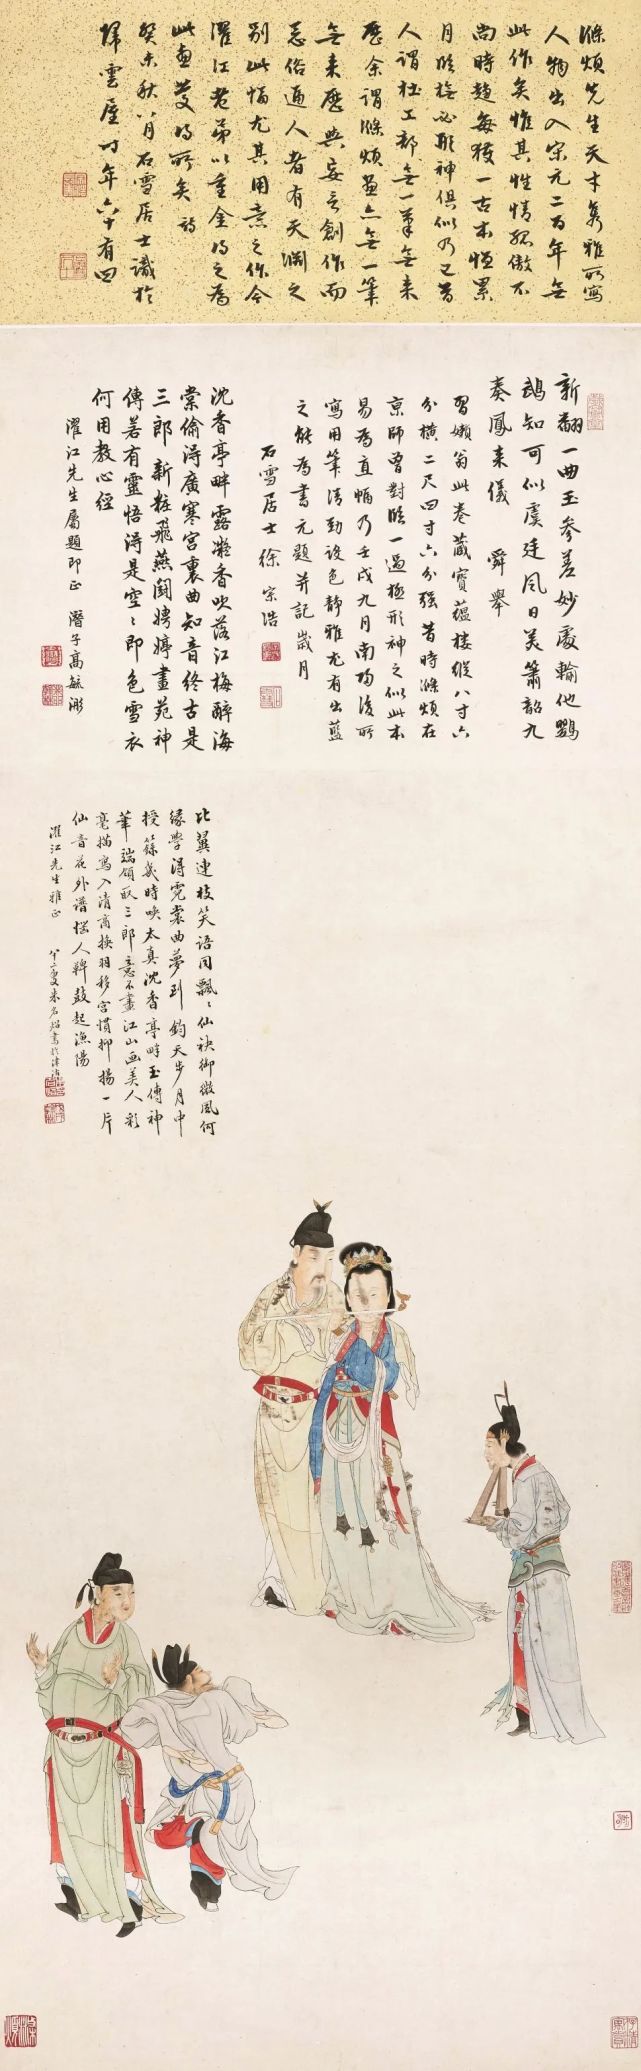 滌煩先生天才雋雅所寫
人物出入宋元二百年無
此作矣惟其性情孤傲不
尚時趨每獲一古本恒累
月臨橅必形神俱似乃已昔
人謂杜工部無一筆無来
歷余謂滌煩畫亦無一筆
無来歷與妄言創作而
惡俗逼人者有天淵之
別此幅尤其用意之作今
濯江老弟以重金得之為
此畫慶得所矣
癸未秋八月石雪居士識於
歸雲屋時年六十有四
新翻一曲玉參差妙處輸他鸚
鵡知可似虞廷風日美簫韶九
奏鳳来儀 舜舉
習嬾翁此卷藏寶蘊樓縱八寸六
分橫二尺四寸六分強昔時滌煩在
京師曾對臨一過極形神之似此本
易為直幅乃壬戌九月南歸後所
寫用筆清勁設色靜雅尤有出藍
之能為書元題并記歲月
石雪居士徐宗浩
沈香亭畔露凝香吹落江梅醉海
棠偷得廣寒宮裏曲知音終古是
三郎 新粧飛燕鬪娉婷畫苑神
傳若有靈悟得是空空即色雪衣
何用教心經
濯江先生屬題即正 潛子高毓浵
比翼連枝笑語同飄飄仙袂御微風何
緣學得霓裳曲夢到鈞天步月中
授餘幾時喚太真沈香亭畔玉傳神
筆端領取三郎意不畫江山畫美人彩
毫描寫入清商換羽移宮慣抑揚一片
仙音花外譜惱人鞞鼓起漁陽
濯江先生雅正